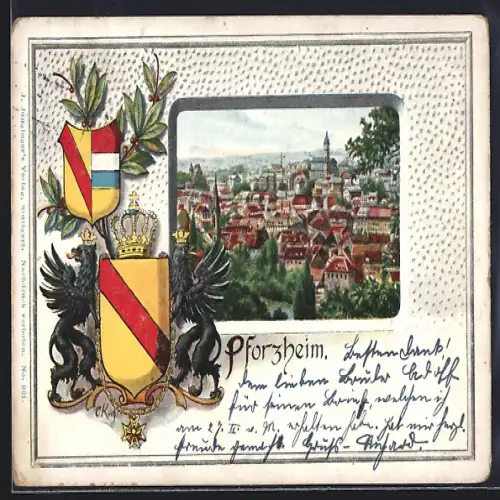 J. Junginger's Verlag, Stuttgart. Nachdruck verboten. No. 901.
Pforzheim.
Besten Dank!
dem lieben Bruder Adolf
für seinen Brief welchen i.
am 27. II v. M. erhalten habe. Hat mir herzl.
Freude gemacht. Gruß - Richard.